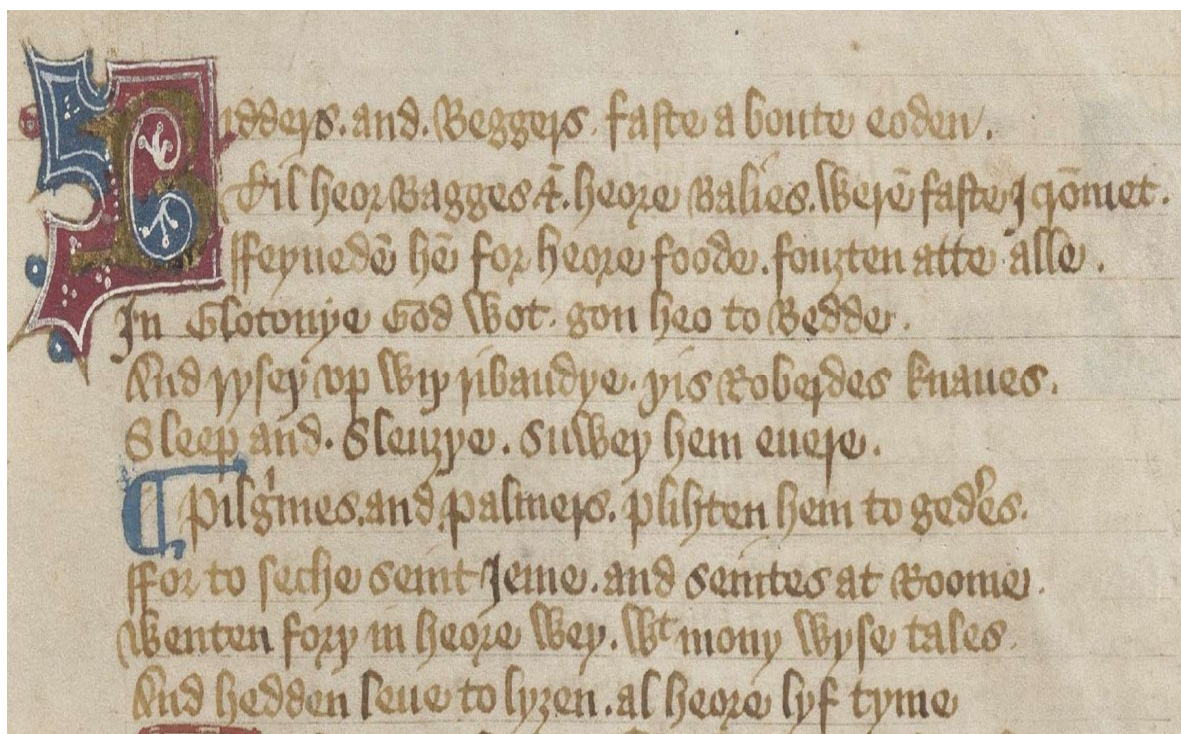 Bidders. and. Beggers. faste a boute eoden.
Til heor Bagges &. heore Balies. werē faste I crōmet.
ffeynedē hē for heore foode. fouȝten atte alle.
In Glotonye God wot. gon heo to Bedde.
And ryseþ vp wiþ ribaudye. þis Roberdes knaues.
Sleep and. Sleuȝþe. suweþ hem euere.
¶ Pilgͥmes. and palmers. plihten hem to gedeͬs.
ffor to seche seint Jeme. and seintes at Roome.
Wenten forþ in heore wey. Wᵗ mony wyse tales.
And hedden leue to lyȝen. al heore lyf tyme